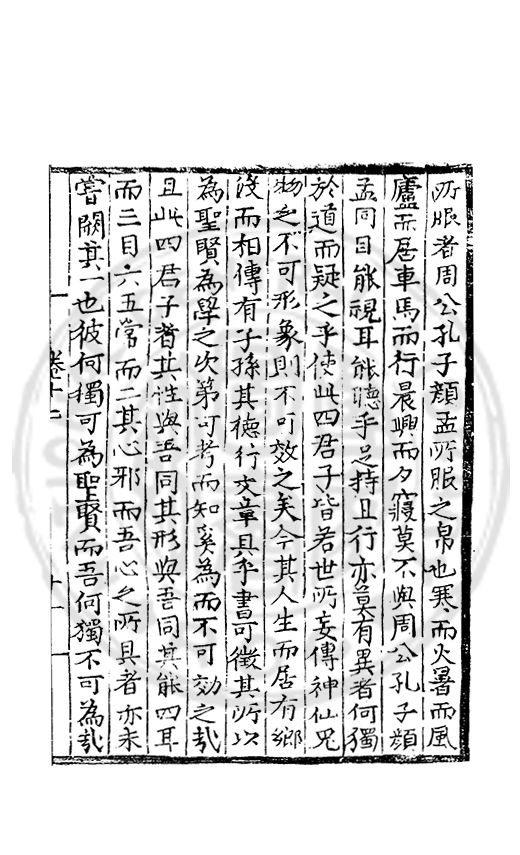 所服者周公孔子顔孟所服之帛也寒而火暑而風
廬而居車馬而行晨興而夕寢莫不與周公孔子顔
孟同目能視耳能聽手足持且行亦莫有異者何獨
於道而疑之乎使此四君子皆若世所妄傳神仙鬼
物之不可形象則不可效之矣今其人生而居有鄉
没而相傳有子孫其德行文章具乎書可徵其所以
為聖賢為學之次第可考而知奚為而不可効之哉
且此四君子者其性與吾同其形與吾同其能四耳
而三目六五常而二其心邪而吾心之所具者亦未
嘗闕其一也彼何獨可為聖賢而吾何獨不可為哉
卷十二
十一